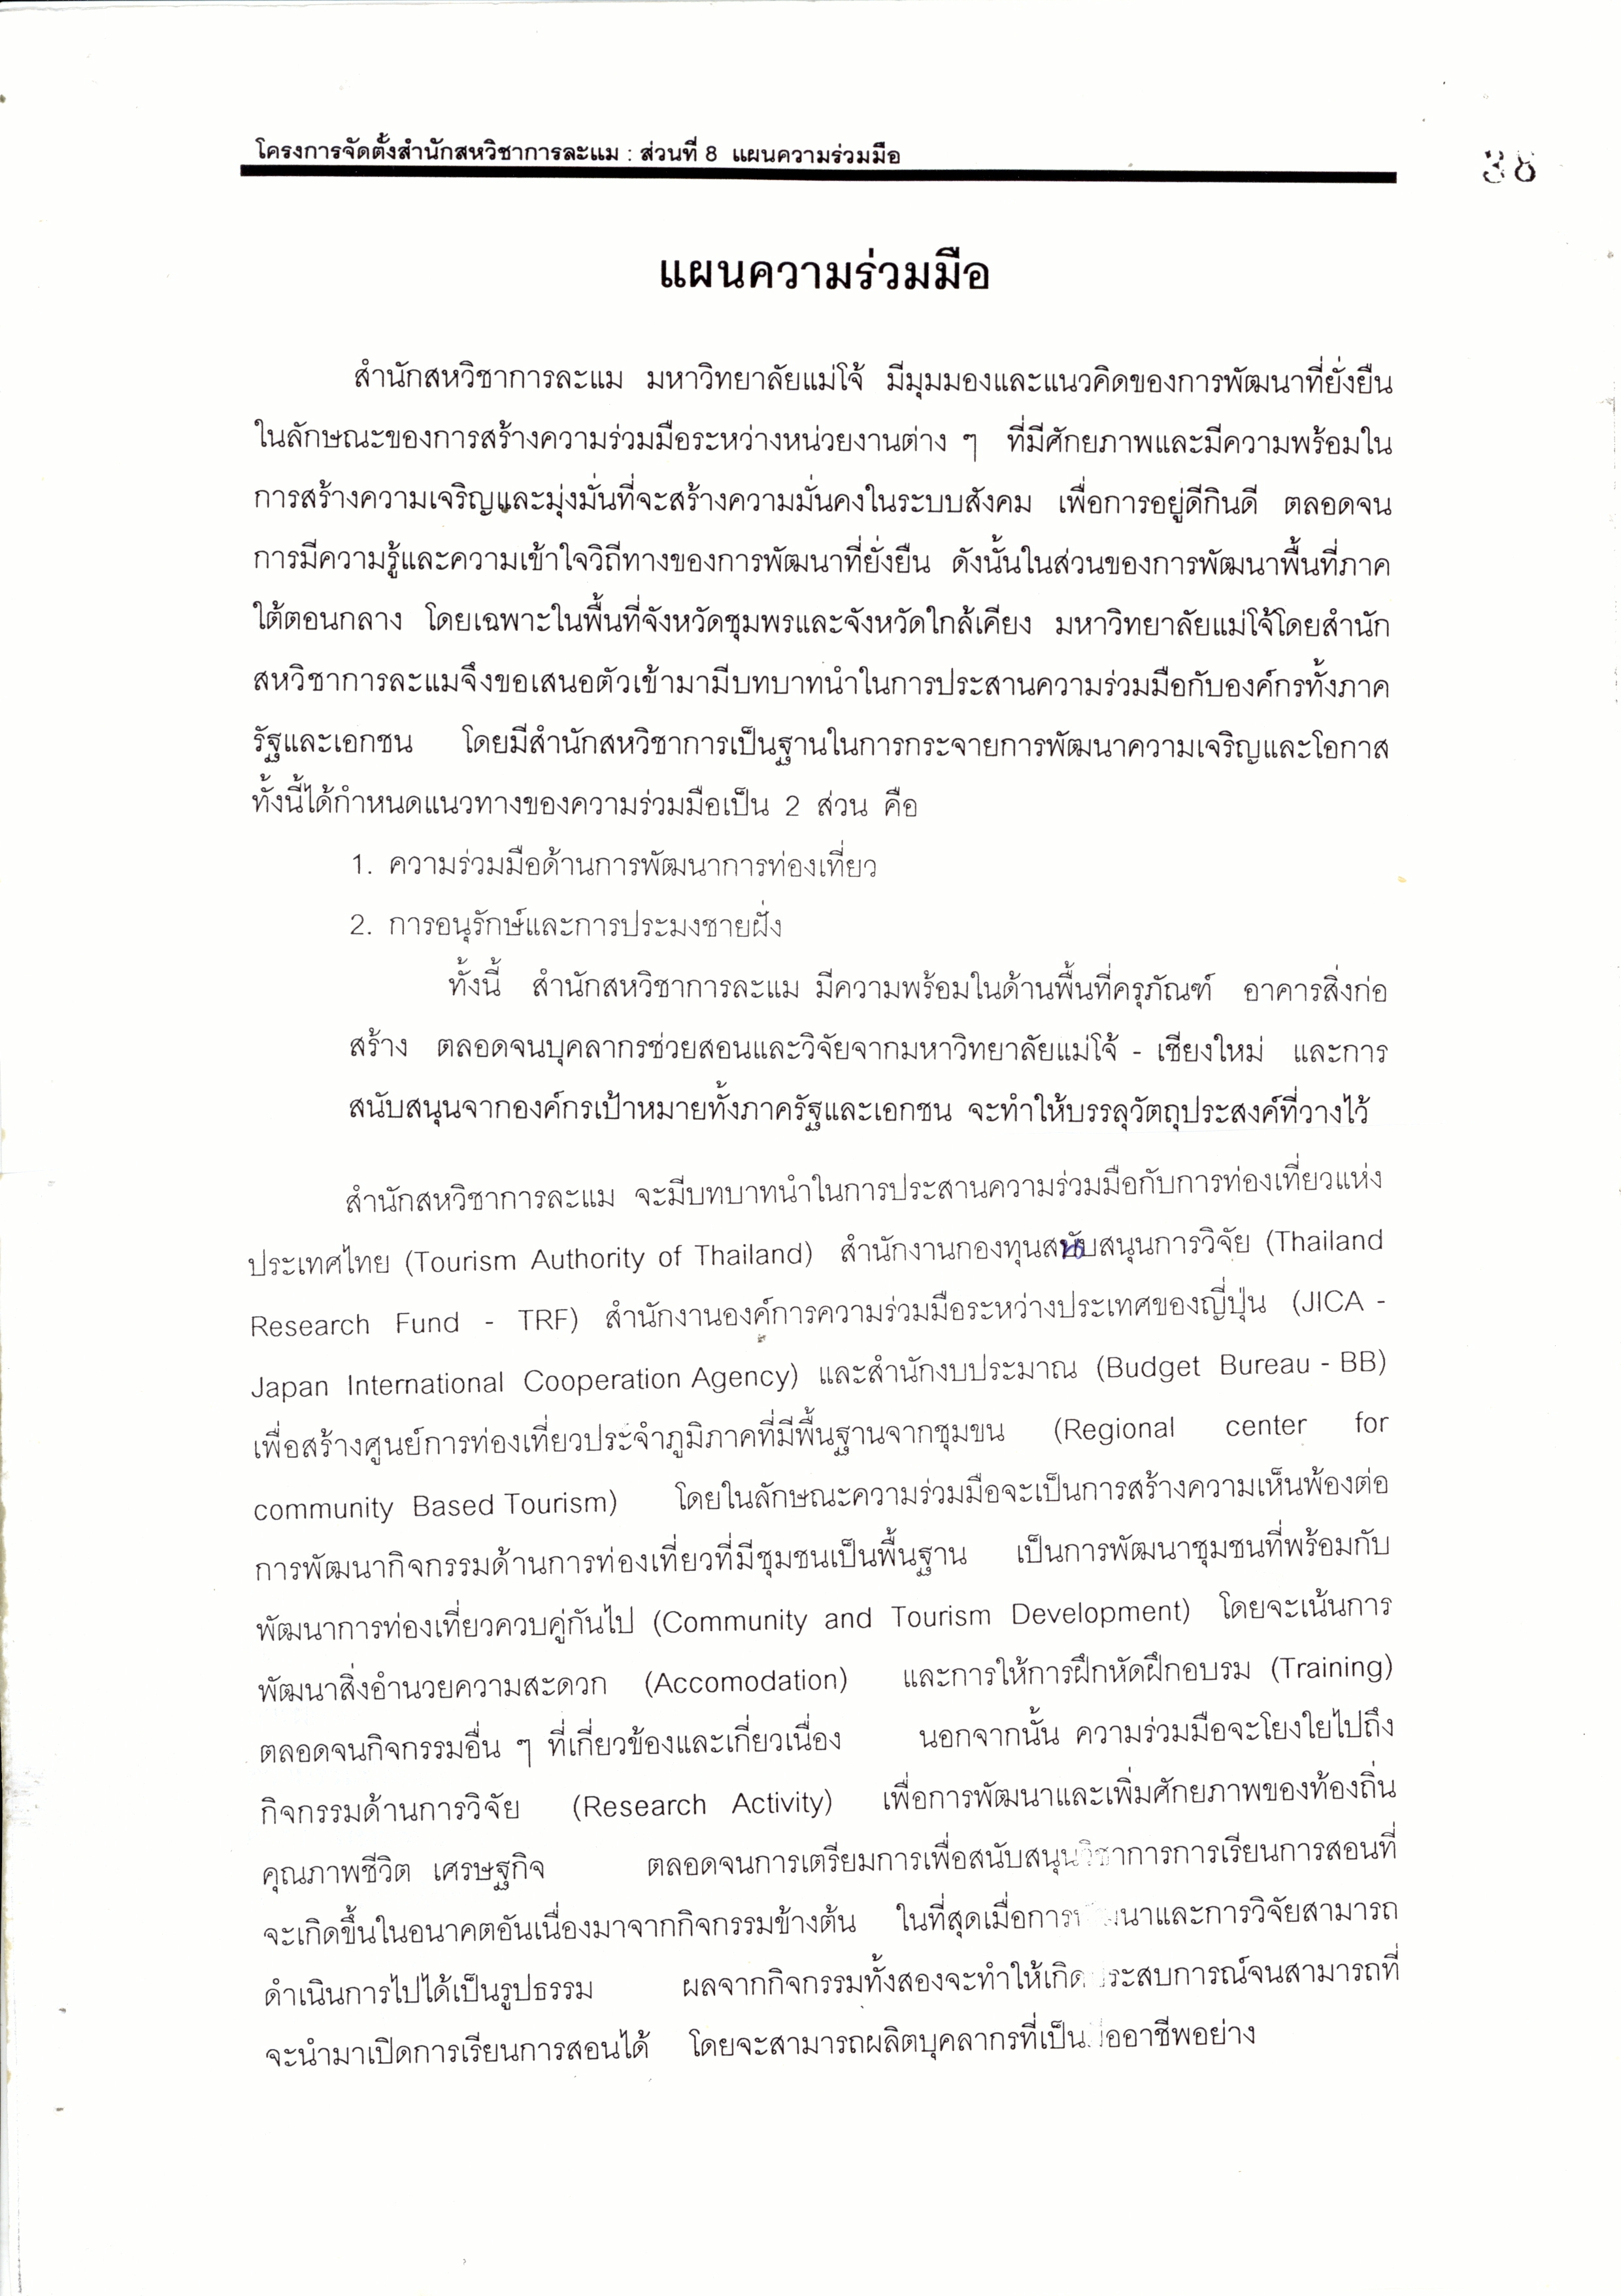 โครงการจัดตั้งสำนักสหวิชาการละแม : ส่วนที่ 8 แผนความร่วมมือ
38
แผนความร่วมมือ
สำนักสหวิชาการละแม มหาวิทยาลัยแม่โจ้ มีมุมมองและแนวคิดของการพัฒนาที่ยั่งยืน
ในลักษณะของการสร้างความร่วมมือระหว่างหน่วยงานต่าง ๆ ที่มีศักยภาพและมีความพร้อมใน
การสร้างความเจริญและมุ่งมั่นที่จะสร้างความมั่นคงในระบบสังคม เพื่อการอยู่ดีกินดี ตลอดจน
การมีความรู้และความเข้าใจวิถีทางของการพัฒนาที่ยั่งยืน ดังนั้นในส่วนของการพัฒนาพื้นที่ภาค
ใต้ตอนกลาง โดยเฉพาะในพื้นที่จังหวัดชุมพรและจังหวัดใกล้เคียง มหาวิทยาลัยแม่โจ้โดยสำนัก
สหวิชาการละแมจึงขอเสนอตัวเข้ามามีบทบาทนำในการประสานความร่วมมือกับองค์กรทั้งภาค
รัฐและเอกชน โดยมีสำนักสหวิชาการเป็นฐานในการกระจายการพัฒนาความเจริญและโอกาส
ทั้งนี้ได้กำหนดแนวทางของความร่วมมือเป็น 2 ส่วน คือ
1. ความร่วมมือด้านการพัฒนาการท่องเที่ยว
2. การอนุรักษ์และการประมงชายฝั่ง
ทั้งนี้ สำนักสหวิชาการละแม มีความพร้อมในด้านพื้นที่ครุภัณฑ์ อาคารสิ่งก่อ
สร้าง ตลอดจนบุคลากรช่วยสอนและวิจัยจากมหาวิทยาลัยแม่โจ้ - เชียงใหม่ และการ
สนับสนุนจากองค์กรเป้าหมายทั้งภาครัฐและเอกชน จะทำให้บรรลุวัตถุประสงค์ที่วางไว้
สำนักสหวิชาการละแม จะมีบทบาทนำในการประสานความร่วมมือกับการท่องเที่ยวแห่ง
ประเทศไทย (Tourism Authority of Thailand) สำนักงานกองทุนสนับสนุนการวิจัย (Thailand
Research Fund - TRF) สำนักงานองค์การความร่วมมือระหว่างประเทศของญี่ปุ่น (JICA -
Japan International Cooperation Agency) และสำนักงบประมาณ (Budget Bureau - BB)
เพื่อสร้างศูนย์การท่องเที่ยวประจำภูมิภาคที่มีพื้นฐานจากชุมขน (Regional center for
community Based Tourism) โดยในลักษณะความร่วมมือจะเป็นการสร้างความเห็นพ้องต่อ
การพัฒนากิจกรรมด้านการท่องเที่ยวที่มีชุมชนเป็นพื้นฐาน เป็นการพัฒนาชุมชนที่พร้อมกับ
พัฒนาการท่องเที่ยวควบคู่กันไป (Community and Tourism Development) โดยจะเน้นการ
พัฒนาสิ่งอำนวยความสะดวก (Accomodation) และการให้การฝึกหัดฝึกอบรม (Training)
ตลอดจนกิจกรรมอื่น ๆ ที่เกี่ยวข้องและเกี่ยวเนื่อง นอกจากนั้น ความร่วมมือจะโยงใยไปถึง
กิจกรรมด้านการวิจัย (Research Activity) เพื่อการพัฒนาและเพิ่มศักยภาพของท้องถิ่น
คุณภาพชีวิต เศรษฐกิจ ตลอดจนการเตรียมการเพื่อสนับสนุนวิชาการการเรียนการสอนที่
จะเกิดขึ้นในอนาคตอันเนื่องมาจากกิจกรรมข้างต้น ในที่สุดเมื่อการพัฒนาและการวิจัยสามารถ
ดำเนินการไปได้เป็นรูปธรรม ผลจากกิจกรรมทั้งสองจะทำให้เกิดประสบการณ์จนสามารถที่
จะนำมาเปิดการเรียนการสอนได้ โดยจะสามารถผลิตบุคลากรที่เป็นมืออาชีพอย่าง